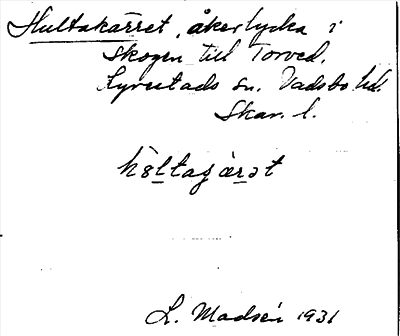 Hultakärret, åkerlycka i
skogen till Torved.
Lyrestads sn. Vadsbo hd.
Skar. l.
hòltaɟæ̀rət
L. Madsén 1931